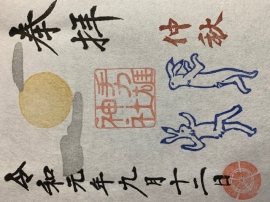 奉拝
仲秋
手力雄神社
令和元年九月十二日